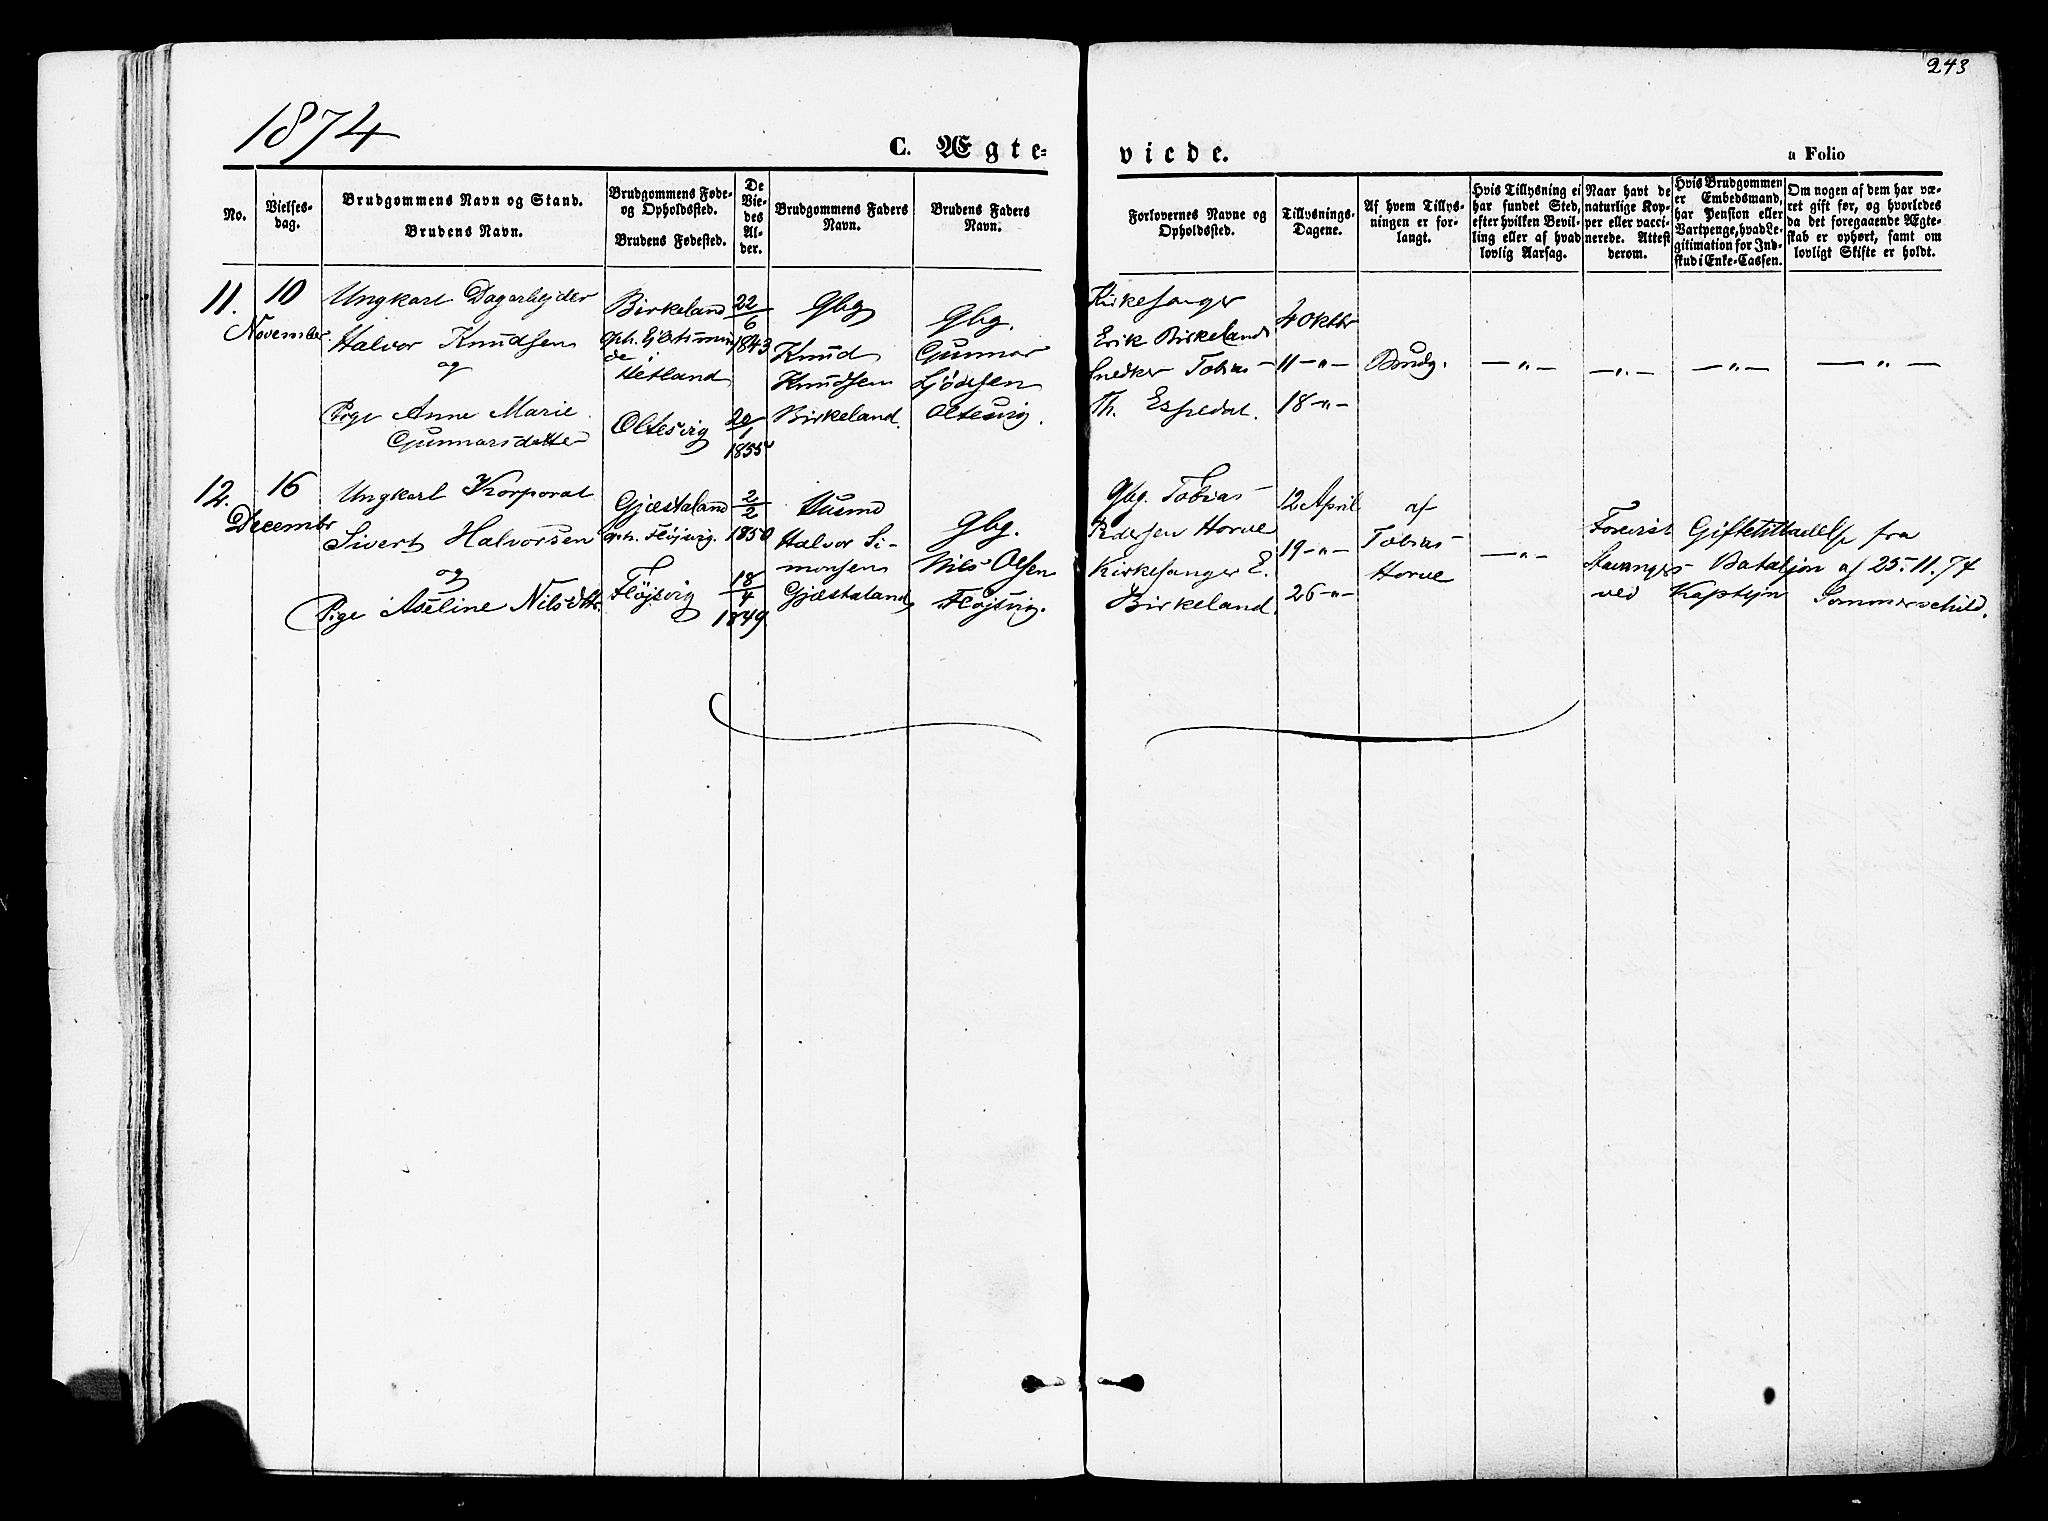 243
1874
C. Ægte=
viede.
a Folio
No.
Vielses-
dag.
Brudgommens Navn og Stand.
Brudens Navn.
Brudgommens Føde-
og Opholdssted.
Brudens Fødested.
De
Vie-
des
Al-
der.
Brudgommens Faders
Navn.
Brudens Faders
Navn.
Forlovernes Navne og
Opholdssted.
Tillysnings-
Dagene.
Af hvem Tillys-
ningen er for-
langt.
Hvis Tillysning ei
har fundet Sted,
efter hvilken Bevil-
ling eller af hvad
lovlig Aarsag.
Naar havt de
naturlige Kop-
per eller vacci-
nerede. Attest
derom.
Hvis Brudgommen
er Embedsmand,
har Pension eller
Vartpenge, hvad Le-
gitimation for Ind-
skud i Enke-Cassen.
Om nogen af dem har væ-
ret gift før, og hvorledes
da det foregaaende Ægte-
skab er ophørt, samt om
lovligt Skifte er holdt.
11.
10
November
Ungkarl Dagarbejder
Halvor Knudsen
og
Pige Anne Marie
Gunnarsdatter
Birkeland
oph.
de i
Hetland
Oltesvig
22
6
1843
20
1
1855
Gbg
Knud
Knudsen
Birkeland.
Gbg.
Gunnar
Oltesvig.
Kirkesanger
Erik Birkeland
Snedker Tobias
Th. Espedal.
4 Oktbr
11 — " —
18 — " —
Brudg.
— " —
— " —
— " —
— " —
12.
16
Decembr
Ungkarl Korporal
Sivert Halvorsen
og
Pige Aseline Nilsdttr.
Gjæstaland
oph. Fløjsvig.
Fløjsvig
2
2
1850
18
4
1849
Husmd
Halvor Si-
monsens
Gjæstaland
Gbg.
Nils Olsen
Fløjsvig.
Gbg. Tobias
Pedersen Horve
Kirkesanger E.
Birkeland.
12 April
19 — " —
26 — " —
af
Tobias
Horve
— " —
Forevist Giftetilladelse fra
Stavangers Bataljon af 25-11.74
ved Kaptejn Sommerschild.